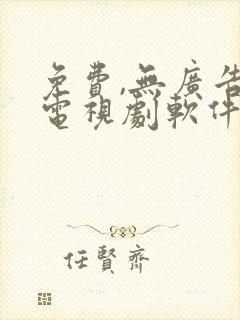 免費,無廣告
電視劇軟件
任賢齊